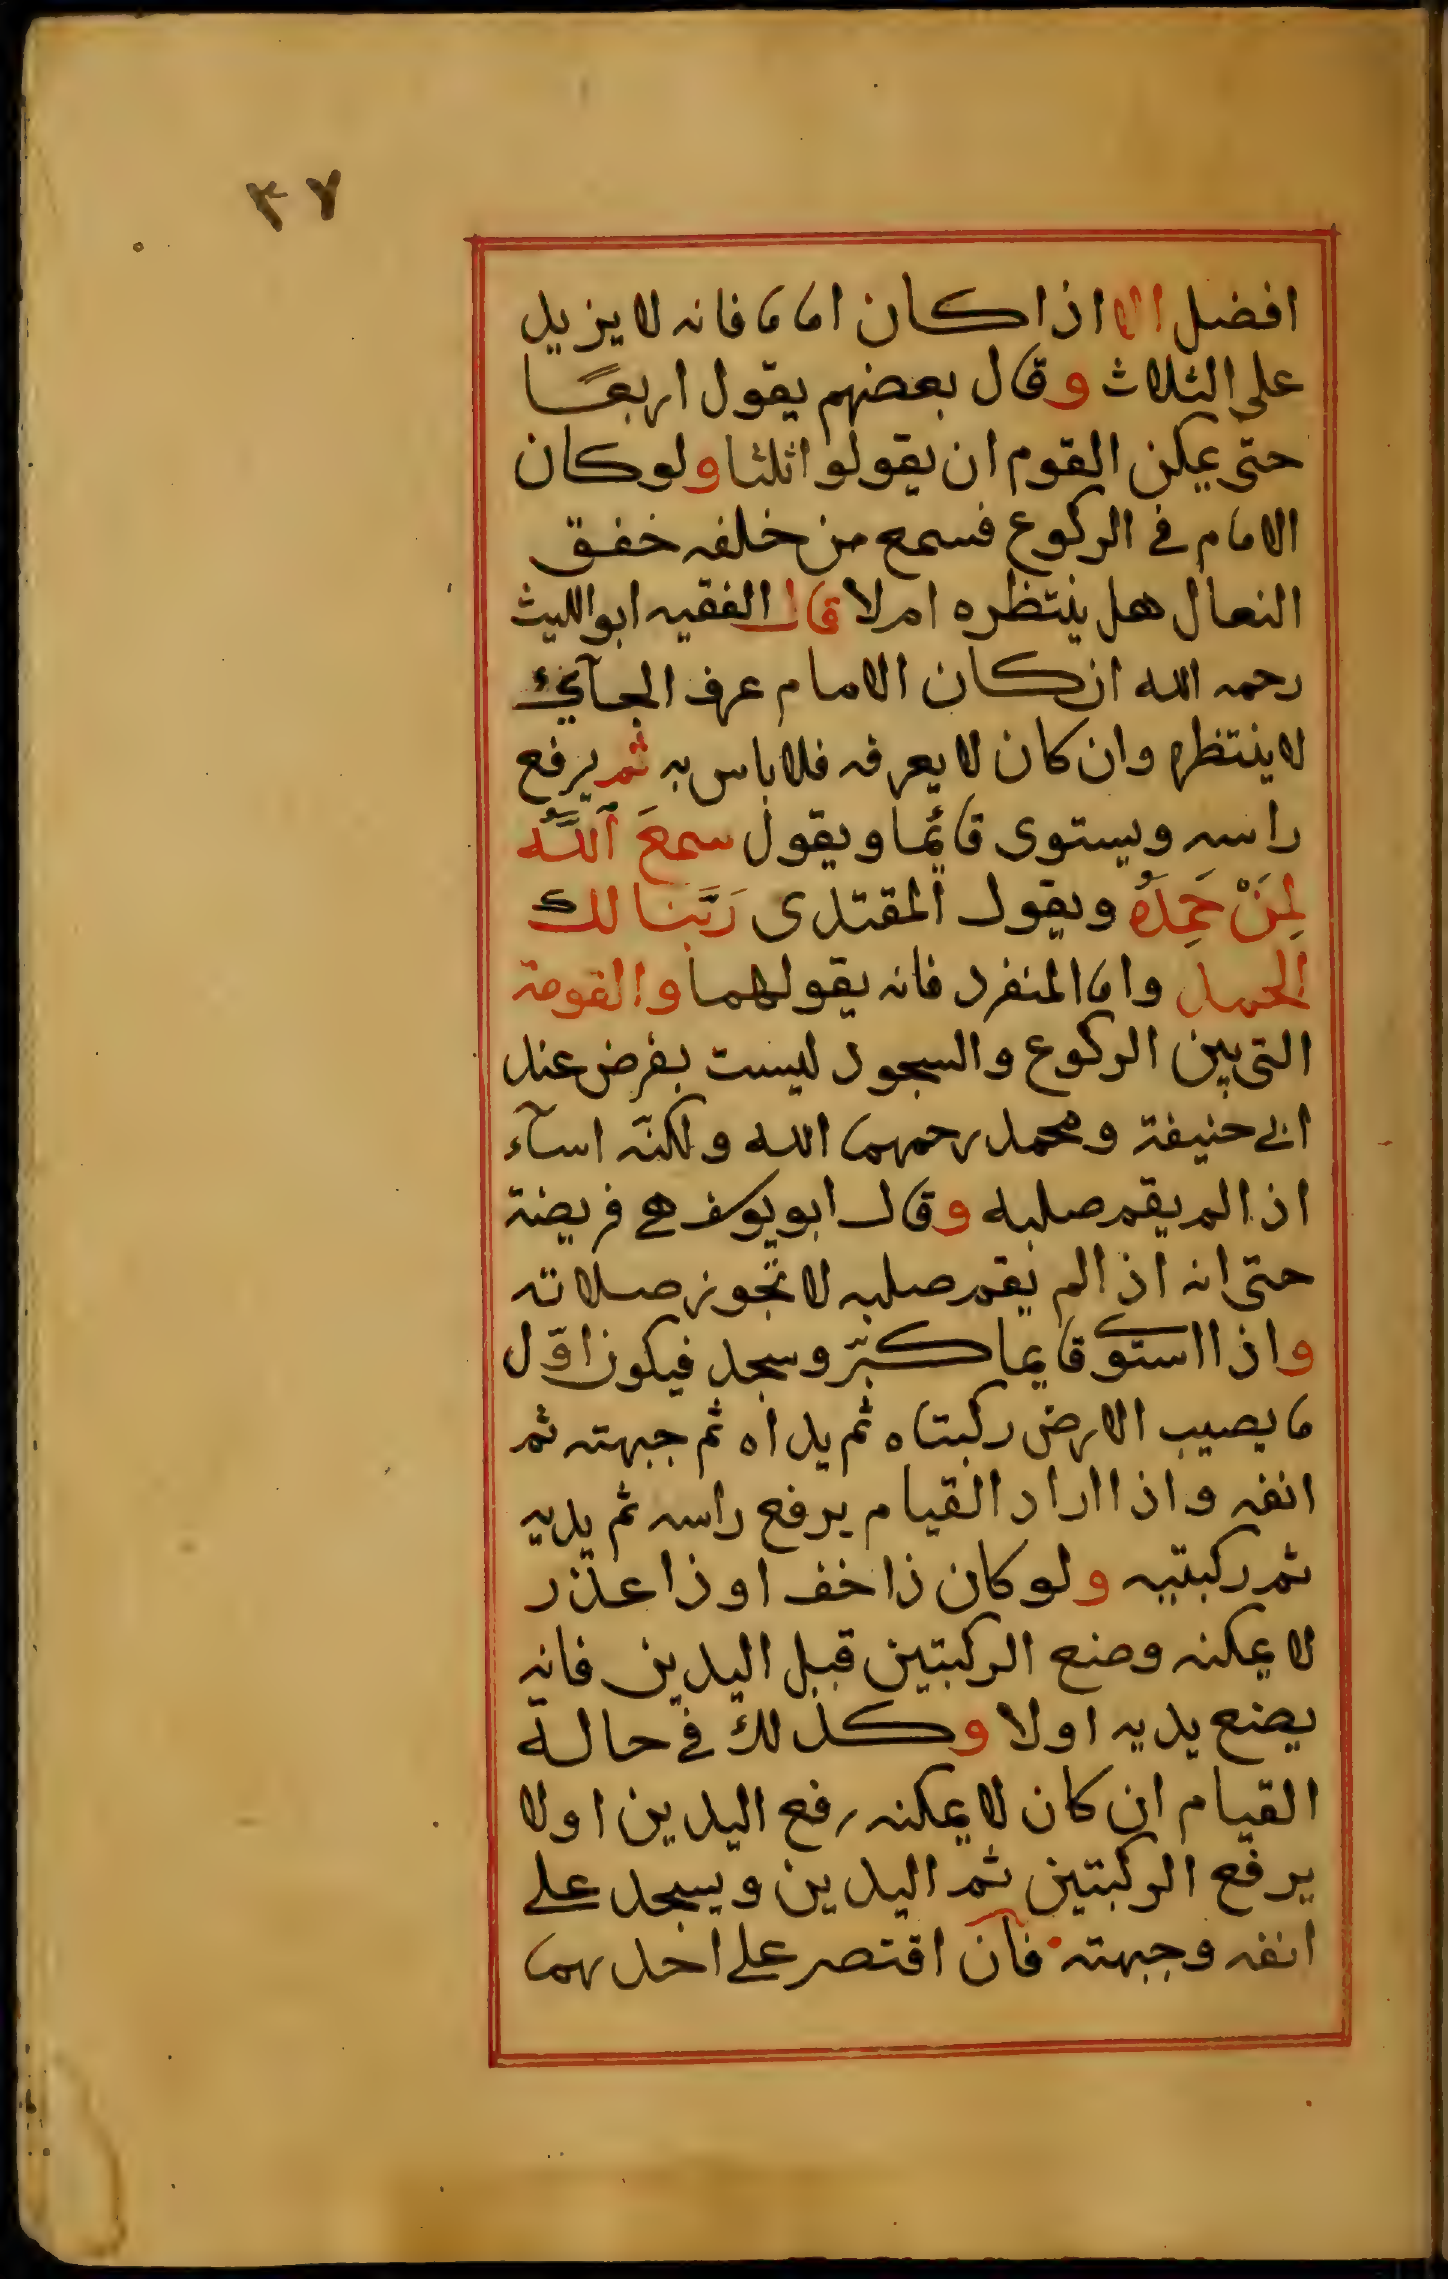 ٣٧
افضل الا اذا كان اماما فانه لا يزيد
على الثلاث وقال بعضهم يقول اربعًا
حتى يمكن القوم ان يقولوا ثلثا ولو كان
الامام في الركوع فسمع من خلفه خفق
النعال هل ينتظره ام لا قال الفقيه ابو الليث
رحمه الله ان كان الامام عرف الجآئي
لا ينتظره وان كان لا يعرفه فلا باس به ثم يرفع
راسه ويستوى قائما ويقول سمعَ ٱللَّهُ
لِمَنْ حَمِدَهُ ويقول المقتدى رَبَّنَا لك
الحمد واما المنفرد فانه يقولهما والقومة
التى بين الركوع والسجود ليست بفرض عند
ابى حنيفة ومحمد رحمهما الله ولكنّه اسآء
اذا لم يقم صلبه وقال ابو يوسف هى فريضة
حتى انه اذا لم يقم صلبه لا تجوز صلاته
واذا استوى قايما كبّر وسجد فيكون اوّل
ما يصيب الارض ركبتاه ثم يداه ثم جبهته ثم
انفه واذا اراد القيام يرفع راسه ثم يديه
ثم ركبتيه ولو كان ذا خف او ذا عذر
لا يمكنه وضع الركبتين قبل اليدين فانه
يضع يديه اولا وكذلك في حالة
القيام ان كان لا يمكنه رفع اليدين اولا
يرفع الركبتين ثم اليدين ويسجد على
انفه وجبهته فان اقتصر على احدهما